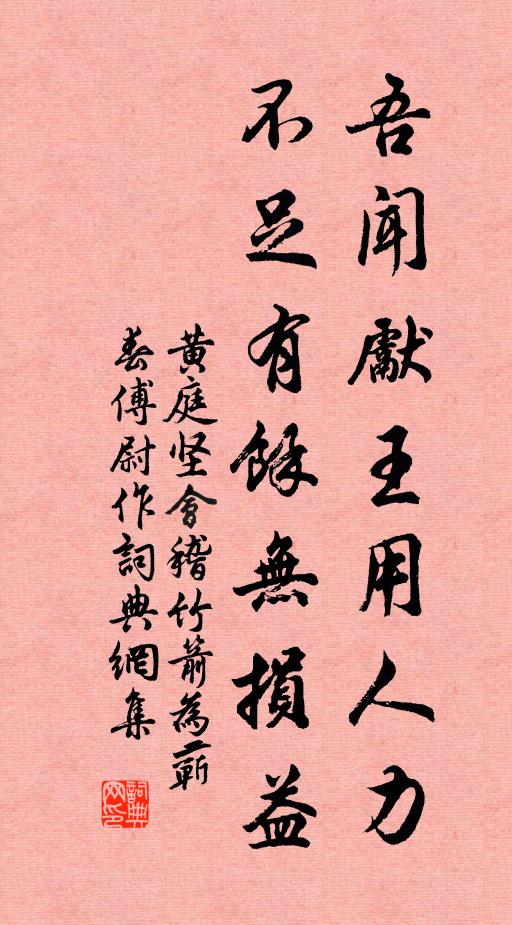 吾闻獻王用人力
不足有餘無損益
黄庭坚會稽竹箭為蘄
春傅尉作詞典網集
詞典
网印